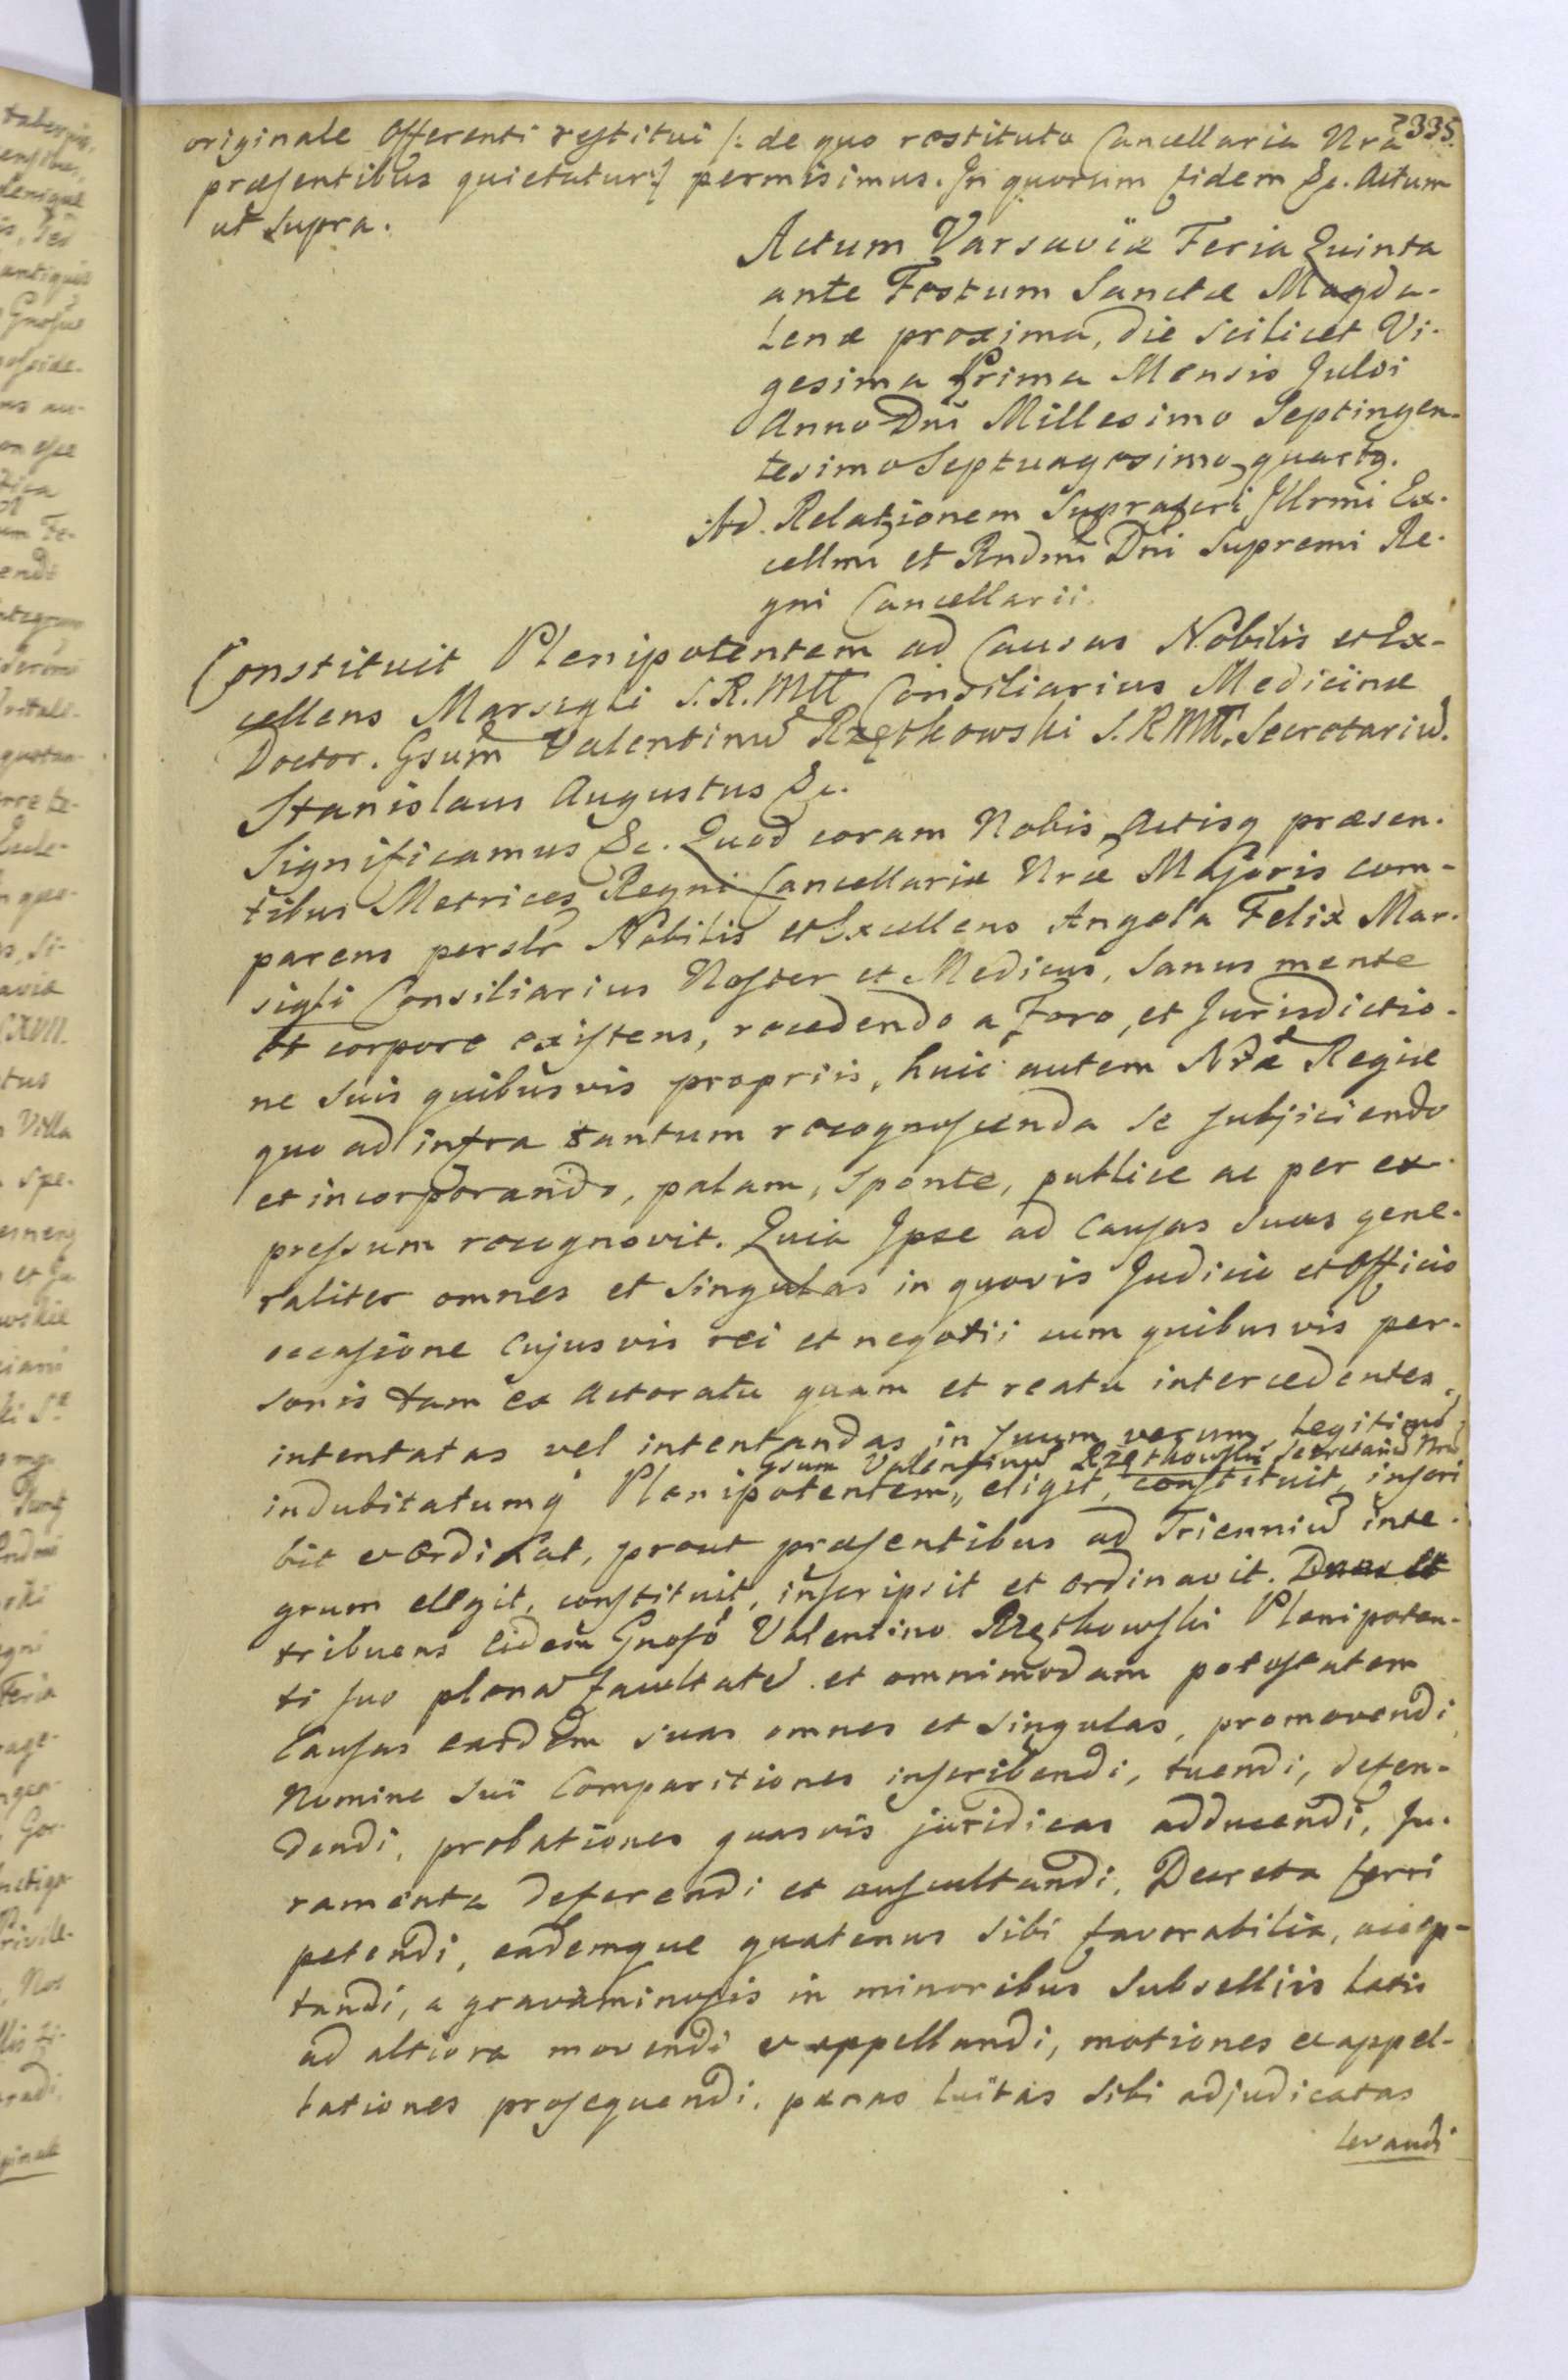 335.
originale Offerenti restitui /: de quo restituto Cancellaria Nrã
præsentibus quietatur :/ permisimus. In quorum fidem &c. Actum
ut supra.
Actum Varsaviæ Feria Quinta
ante Festum Sanctæ Magda-
lenæ proxima, die scilicet Vi-
gesima Prima Mensis Julii
Anno Dnĩ Millesimo Septingen-
tesimo Septuagesimo quarto.
Ad Relationem Suprascri Illrmi Ex-
cellmi et Rndmi Dni Supremi Re-
gni Cancellarii.
Constituit Plenipotentem ad Causas Nobilis et Ex-
cellens Marsigli S.R.Mtt Consiliarius Medicinæ
Doctor. Gsum Valentinũ Rzętkowski S.RMtt. Secretariũ.
Stanislaus Augustus &c.
Significamus &c. Quod coram Nobis Actisq præsen-
tibus Metrices Regni Cancellariæ Nræ Majoris com-
parens perslr Nobilis et Excellens Angela Felix Mar-
sigli Consiliarius Noster et Medicus, sanus mente
et corpore existens, recedendo a Foro, et Jurisdictio-
ne suis quibusvis propriis, huic autem Nræ Regiæ
quo ad infra tantum recognoscenda se subjiciendo
et incorporando, palam, sponte, publice ac per ex-
pressum recognovit. Quia Ipse ad Causas suas gene-
raliter omnes et singulas in quovis Judicio et Officio
occasione cujusvis rei et negotii cum quibusvis per-
sonis tam ex Actoratu quam et reatu intercedentes,
intentatas vel intentandas in suum verum Legitimũ
Gsum Valentinũ Rzętkowski Secretariũ Nrũ
indubitatumq Plenipotentem,, eligit, constituit, inscri
bit et Ordinat, prout præsentibus ad Trienniũ inte-
grum elegit, constituit, inscripsit et ordinavit. Dans et
tribuens Eidem Gnoso Valentino Rzętkowski Plenipoten-
ti suo plenã facultatẽ et omnimodam potestatem
Causas easdem suas omnes et singulas, promovendi
Nomine sui Comparitiones inscribendi, tuendi, defen-
dendi, probationes quasvis juridicas adducendi, Ju-
ramenta deferendi et auscultandi, Decreta ferri
petendi, eademque quatenus sibi favorabilia, accep-
tandi, a gravaminosis in minoribus Subselliis latis
ad altiora movendi et appellandi, motiones et appel-
lationes prosequendi, pænas luitas sibi adjudicatas
levandi